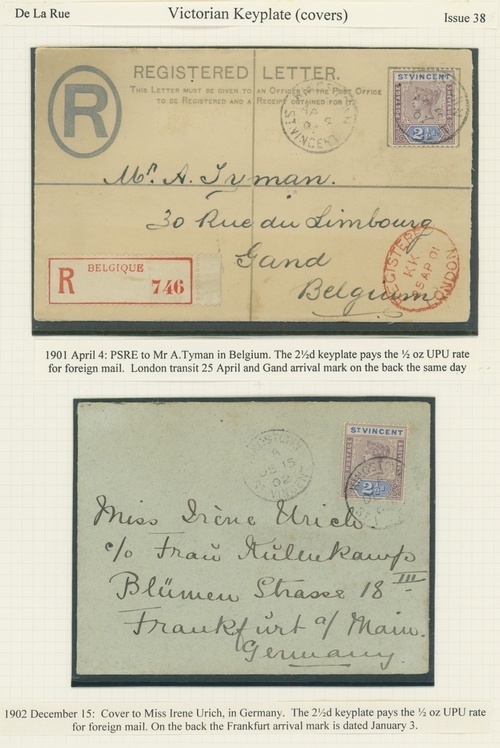 De La Rue
Victorian Keyplate (covers)
Issue 38
REGISTERED LETTER.
THIS LETTER MUST BE GIVEN TO AN OFFICER OF THE POST OFFICE
TO BE REGISTERED AND A RECEIPT OBTAINED FOR IT
R
ST VINCENT
POSTAGE
2½d
ST. VINCENT
Mr. A. Tyman.
30 Rue du Limbourg
Gand
Belgium
R
BELGIQUE
746
REGISTERED
KK
AP 01
LONDON
1901 April 4: PSRE to Mr A.Tyman in Belgium. The 2½d keyplate pays the ½ oz UPU rate
for foreign mail. London transit 25 April and Gand arrival mark on the back the same day
KINGSTOWN
A
DE 15
02
ST. VINCENT
ST VINCENT
POSTAGE
2½d
KINGSTOWN
Miss Irène Urich.
c/o Frau Kulenkampf
Blümen Strasse 18 III
Frankfurt a/ Main.
Germany.
1902 December 15: Cover to Miss Irene Urich, in Germany. The 2½d keyplate pays the ½ oz UPU rate
for foreign mail. On the back the Frankfurt arrival mark is dated January 3.